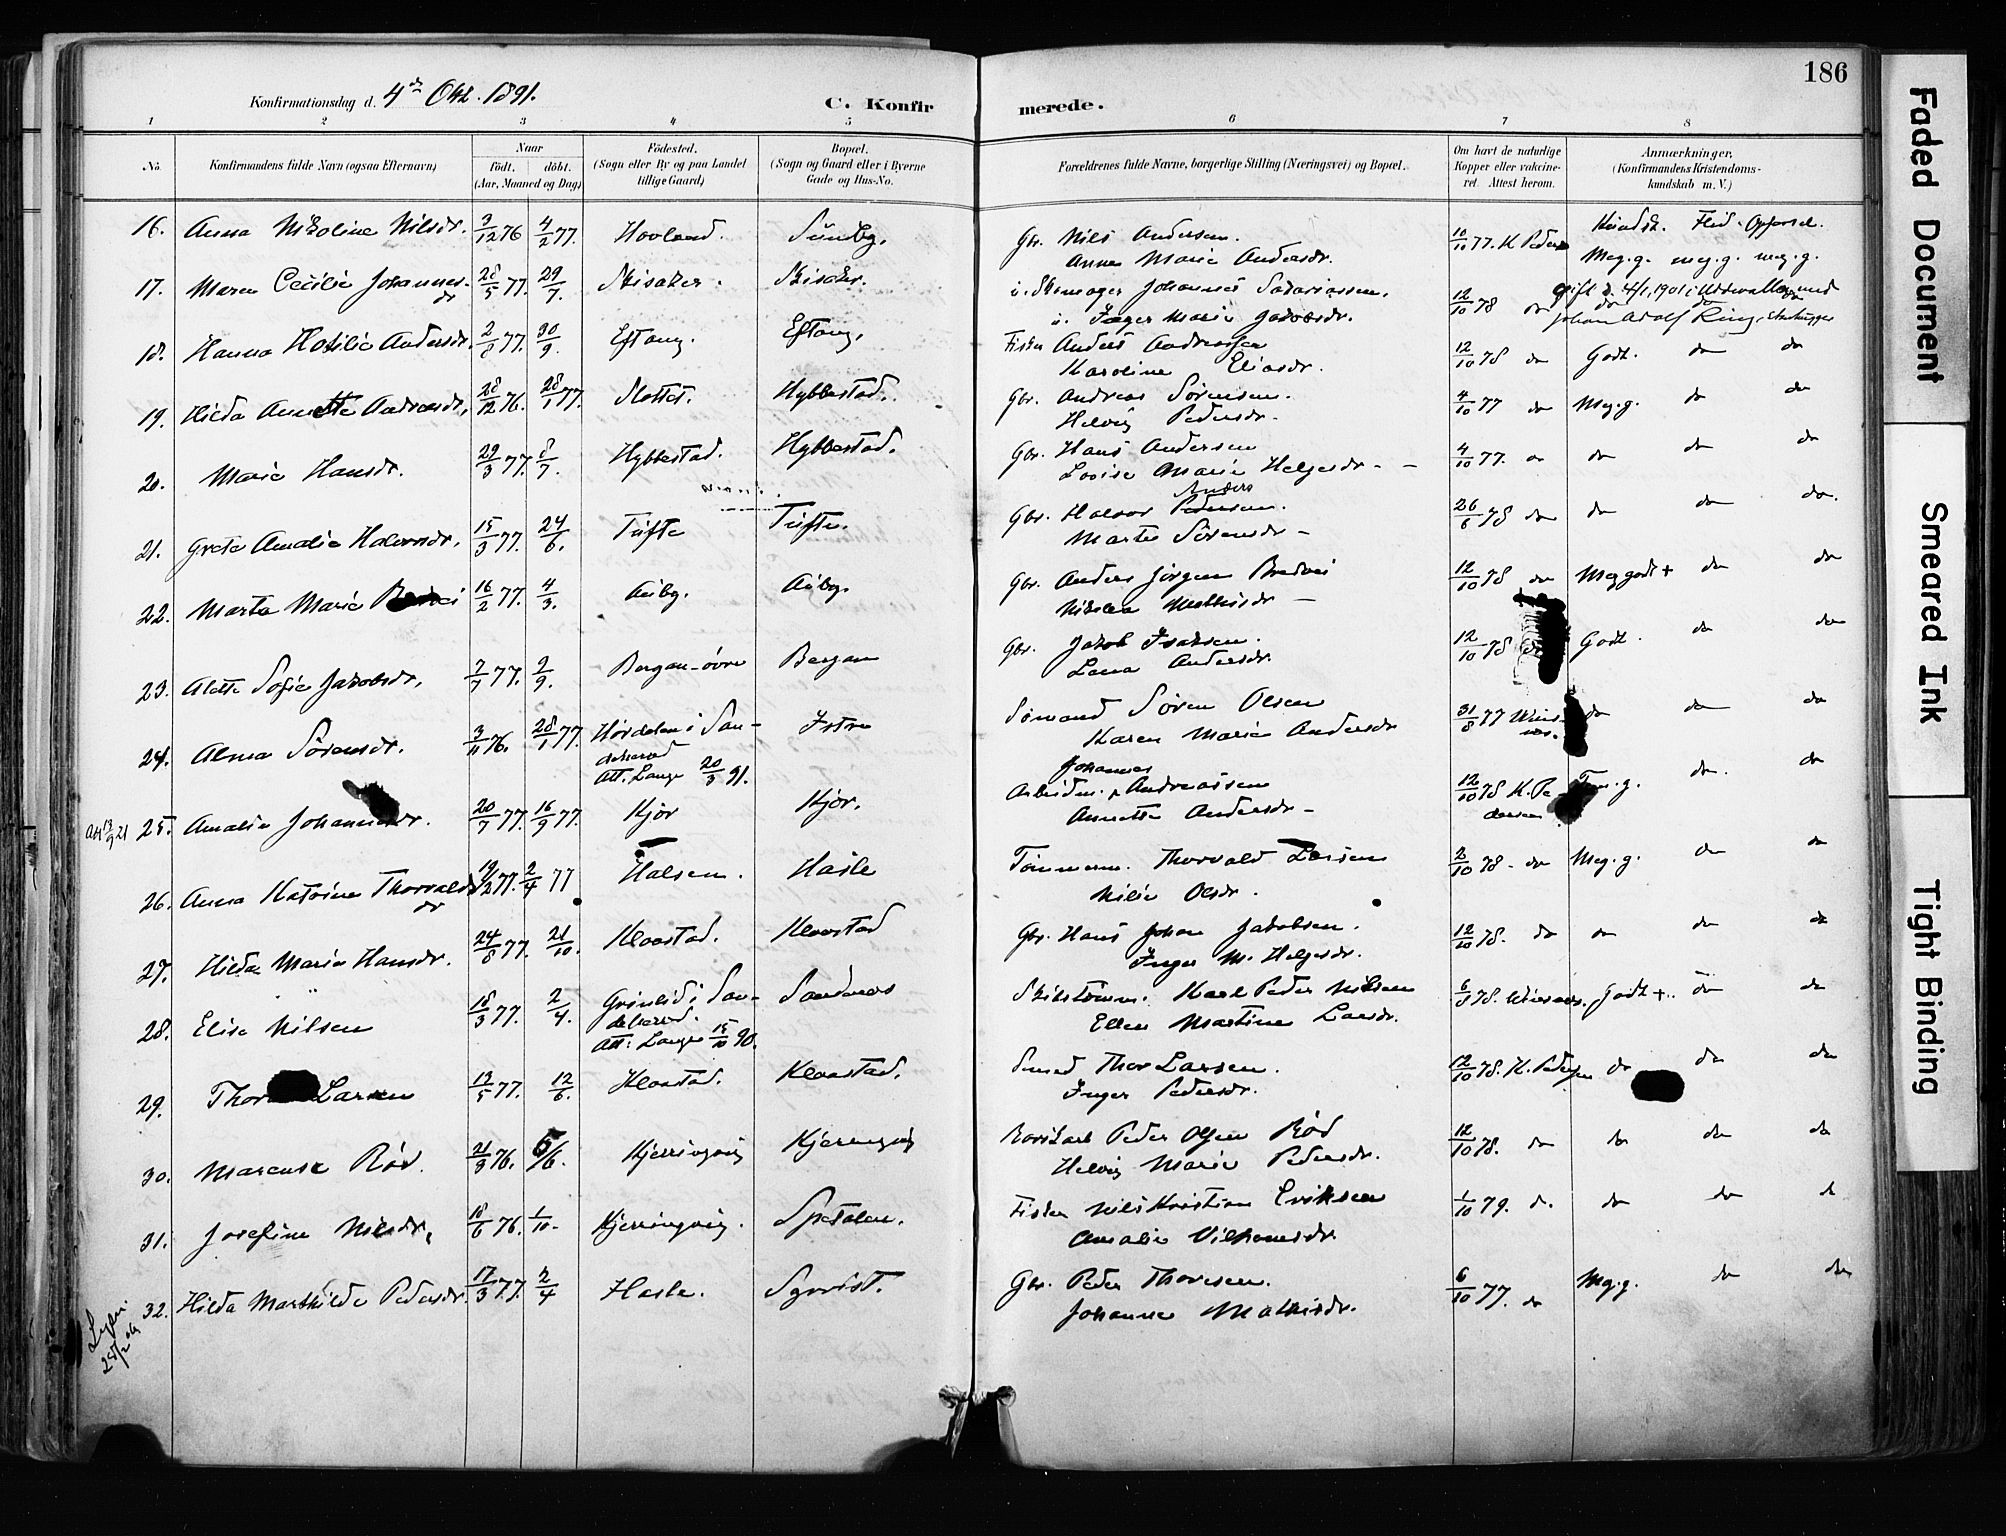 186
Konfirmationsdag d. 4de Okt. 1891.
C. Konfirmerede.
1 2 3 4 5 6 7 8
No.
Konfirmandens fulde Navn (ogsaa Efternavn)
Naar
födt. döbt.
(Aar, Maaned og Dag)
Födested.
(Sogn eller By og paa Landet
tillige Gaard)
Bopæl.
(Sogn og Gaard eller i Byerne
Gade og Hus-No.
Forældrenes fulde Navne, borgerlige Stilling (Næringsvei) og Bopæl.
Om havt de naturlige
Kopper eller vakcine-
ret. Attest herom.
Anmærkninger,
(Konfirmandens Kristendoms-
kundskab m. V.)
Kundsk. Flid. Opførsel.
16. Anna Nikoline Nilsdr. 3/12 76 4/2 77. Hovland. Sundby. Gbr. Nils Andersen. 10/10 77. K Peders
Anne Marie Andersdr. Meg.g. meg.g. meg.g.
17. Maren Cecilie Johannes- 28/5 77. 29/7. Skisaker. Skisaker. Johannes 12/10 78 do
dr u. Inger Marie Jakobsdr.
gift d. 4/1, 1901 i Uddevalla med
Johan Adolf Ring,
18. Hanna Andersdr. 2/8 77. 30/9. Eftang. Eftang. Fisker Anders Andreassen 12/10 78 do Godt. do do
Karoline Eliasdr.
19. Hilda Annette Andreasdr. 28/12 76. 28/1 77. Slottet. Hybbestad. Gbr. Andreas Sørensen. 4/10 77 do Meg.g. do do
Helvig Pedersdr.
20. Marie Hansdr. 29/3 77. 8/7. Hybbestad. Hybbestad. Gbr. Hans Andersen 4/10 77. do do do do
Lovise Marie Helgesdr.
21. Grete Amalie Halvorsdr. 15/3 77. 24/6. Tufte Tufte. Gbr. Halvor Anders Pedersen. 26/6 78 do do do do.
Marte Sörensdr
22. Marta Marie 16/2 77. 4/3. Auby. Auby. Gbr. Anders Jörgen Bredvei 12/10 78 do Meg godt + do do
Nikolea Mathisdr
23. Alette Sofie Jakobsdr. 2/7 77. 2/9. Bergan-övre Bergan Gbr. Jakob Isaksen. 12/10 78 do Godt. do do
Lena Andersdr.
24. Alma Sörensdr. 3/11 76. 28/1 77. i San- Istre Sömand Sören Olsen 31/8 77 do do do
deherad Karen Marie Andersdr
Att. Lange 20/3 91.
Att 13/9 21 25. Amalie Johannesdr. 20/7 77. 16/9 77. Kjör Kjör. Arbeider Johannes Andreassen 12/10 78 K. Pe do. do
Annette Andersdr dersen
26. Anna Katrine Thorvalds 19/12 77. 2/4 77 Halsen. Hasle Tömmerm. Thorvald Larsen 2/10 78 do Meg.g. do do
dr Nilia Olsdr.
27. Hilda Marie Hansdr. 24/8 77. 21/10. Klaastad. Klaastad Gbr. Hans Johan Jakobsen. 12/10 78. do do do do
Inger M. Helgesdr.
28. Elise Nilsen 18/3 77. 2/4. Grinlid i San- Sandnes Skibstömm. Karl Peder Nilsen 6/8 78. Godt +. do do
deherad. Ellen Martine Larsdr.
Att: Lange 15/10 90.
29. Thor Larsen 13/5 77. 12/6. Klaastad. Klaastad. Smed Thor Larsen. 12/10 78. K. Pedersen do do do
Inger Pedersdr.
30. Marense Röd. 21/3 76. 5/6. Kjerringvig Kjerringvig Peder Olsen Röd 12/10 78. do do do do
Helvig Marie Pedersdr.
31. Josefine Nilsdr. 18/6 76. 1/10. Kjerringvig. Spetalen. Fisker Nils Kristian Eriksen 1/10 79. do do do do
Amalie Vilhomsdr.
32. Hilda Marthilde Pedersdr. 17/3 77. 2/4 Hasle. Sqvrist. Gbr. Peder Thoresen. 6/10 77. do Meg.g. do do
Johanne Mathisdr.
Faded Document
Smeared Ink
Tight Binding